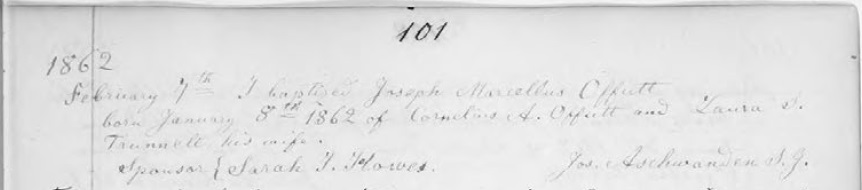 101
1862
February 7th I baptized Joseph Marcellus Offutt
born January 8th 1862 of Cornelius A. Offutt and Laura S.
Trunnell, his wife.
Sponsor { Sarah T. Howes. Jos. Aschwanden S.J.